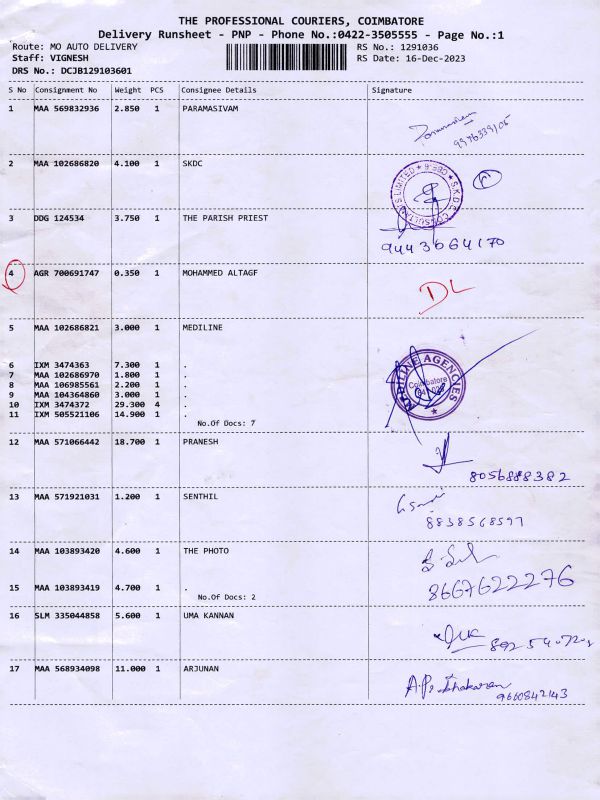 THE PROFESSIONAL COURIERS, COIMBATORE
Delivery Runsheet - PNP - Phone No.:0422-3505555 - Page No.:1
Route: MO AUTO DELIVERY RS No.: 1291036
Staff: VIGNESH RS Date: 16-Dec-2023
DRS No.: DCJB129103601
S No Consignment No Weight PCS Consignee Details Signature
1 MAA 569832936 2.850 1 PARAMASIVAM
Paramasivam
2 MAA 102686820 4.100 1 SKDC
S.K.D.C. CONSULTANTS LIMITED ★ CBE-6 ★
3 DDG 124534 3.750 1 THE PARISH PRIEST
9443064170
4 AGR 700691747 0.350 1 MOHAMMED ALTAGF
DL
5 MAA 102686821 3.000 1 MEDILINE
MEDILINE AGENCIES
Coimbatore
6 IXM 3474363 7.300 1 .
7 MAA 102686970 1.800 1 .
8 MAA 106985561 2.200 1 .
9 MAA 104364860 3.000 1 .
10 IXM 3474372 29.300 4 .
11 IXM 505521106 14.900 1 .
No.Of Docs: 7
12 MAA 571066442 18.700 1 PRANESH
8056888382
13 MAA 571921031 1.200 1 SENTHIL
8838568597
14 MAA 103893420 4.600 1 THE PHOTO
8667622276
15 MAA 103893419 4.700 1 .
No.Of Docs: 2
16 SLM 335044858 5.600 1 UMA KANNAN
17 MAA 568934098 11.000 1 ARJUNAN
9660842143